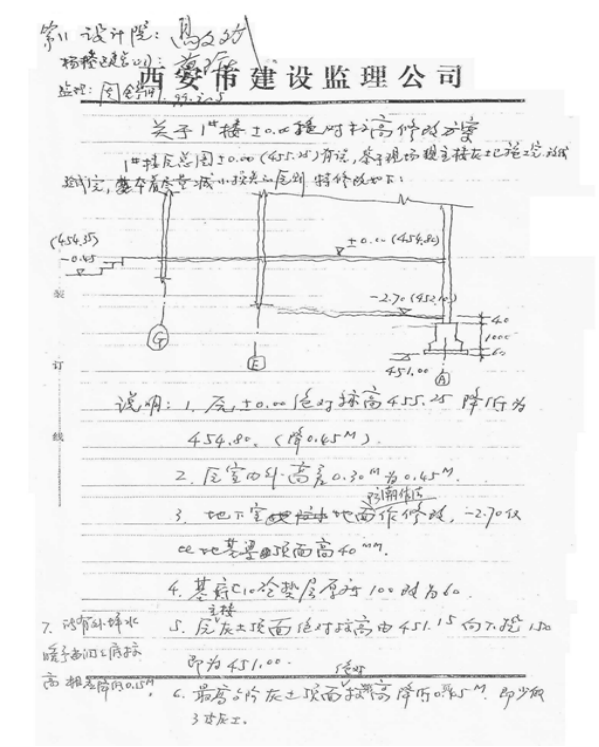 第11设计院：
监理：
西安市建设监理公司
关于1#楼±0.00绝对标高修改方案
1#楼原总图±0.00(455.25)有误，鉴于现场现主楼灰土已施工完，
特修改如下：
(454.35)
-0.45
±0.00(454.80)
-2.70(452.10)
40
1000
60
451.00
G
E
A
装
订
线
说明：1. 原±0.00绝对标高455.25降低为
454.80.(降0.45M).
2. 原室内外高差0.30M为0.45M.
防潮做法
3. 地下室地面作修改，-2.70仅
比地基梁顶面高40mm.
4. 基础C10砼垫层厚度100改为60.
主楼
5. 原灰土顶面绝对标高由451.15向下挖150
即为451.00.
绝对
6. 最高台阶灰土顶面标高降低0.45M.即少做
3步灰土.
7. 所有外排水
高相应降低0.15M.